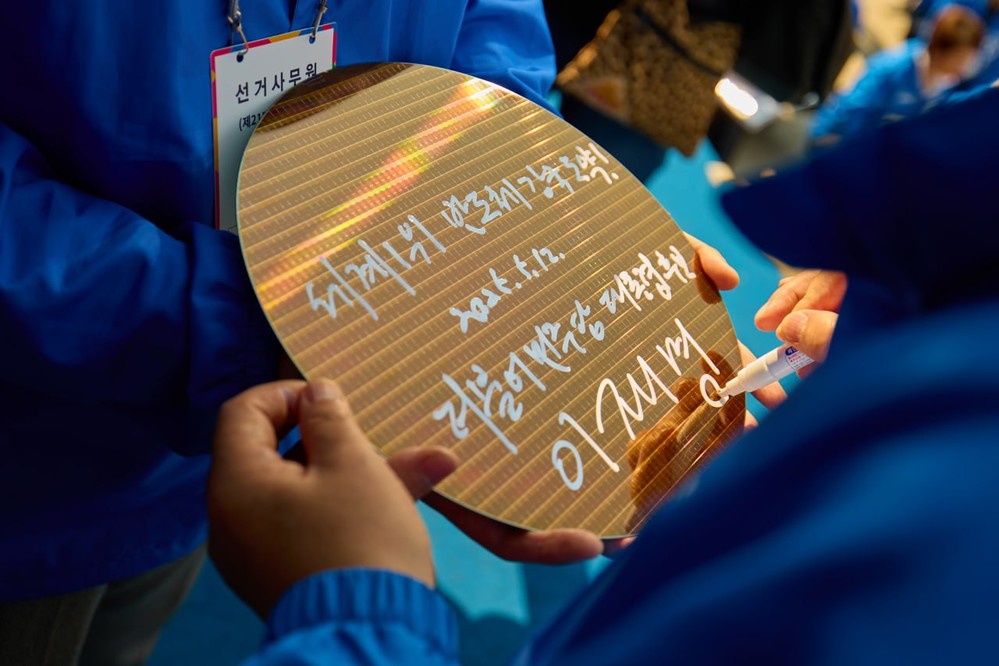 선거사무원
(제21
세계1위 반도체강국 도약!
2025.5.12.
더불어민주당 대통령후보
이재명